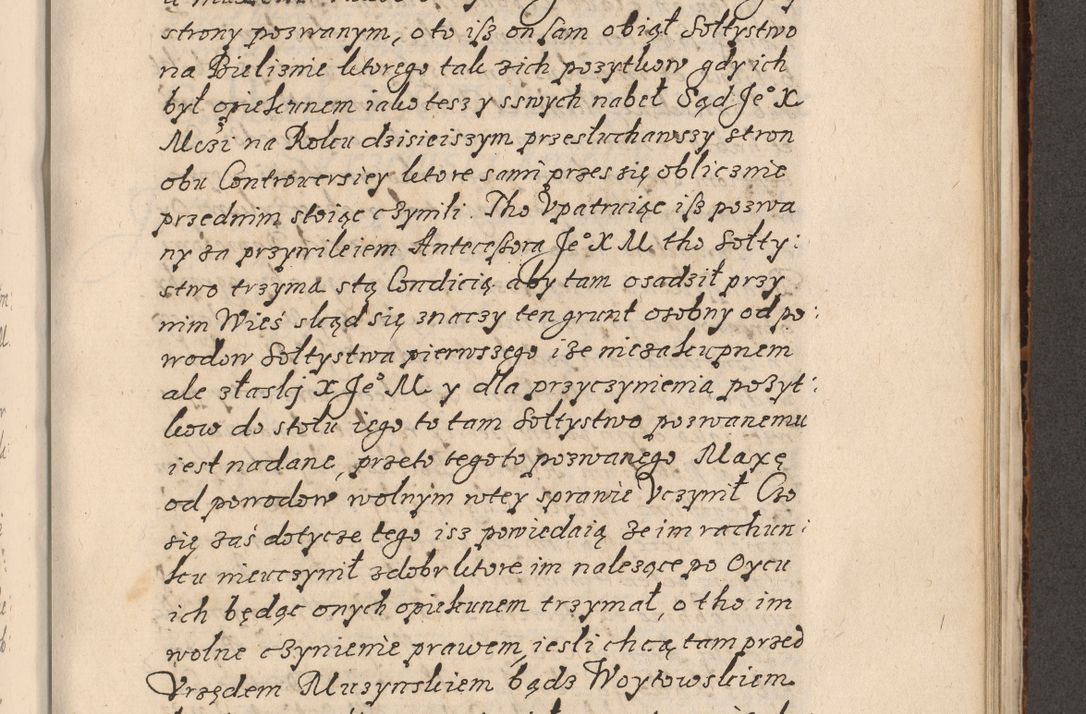 strony pozwanym, o to isz on sam obiął Sołtystwo
na Bieliznie ktorego tak zich pozytkow gdy ich
był opiekunem iako tesz y sswych nabeł Sąd Je° X
Mczi na Roku dzisieiszym przesłuchawszy stron
obu Controuersiey ktore sami przes się oblicznie
przednim stoiąc czynili. Tho Vpatruiąc isz pozwa
ny za przywileiem Antecessora Je° X M tho Sołty:
stwo trzyma stą Condicią aby tam osadził przy
nim Wieś skąd się znaczy ten grunt osobny od po:
wodow Sołtystwa pierwszego i ze niezakupnem
ale złaskj X Je° M y dla przyczynienia pozyt:
kow do stołu iego to tam Sołtystwo pozwanemu
iest nadane, przeto tegoto pozwanego Maxę
od powodow wolnym wtey sprawie Vczynił Czo
się zaś dotycze tego isz powiedaią ze im rachun:
ku nieuczynił zdobr ktore im nalezące po Oycu
ich będąc onych opiekunem trzymał, o tho im
wolne czynienie prawem, iesli chcą tam przed
Vrzędem Muszynskiem bądz Woytowskiem